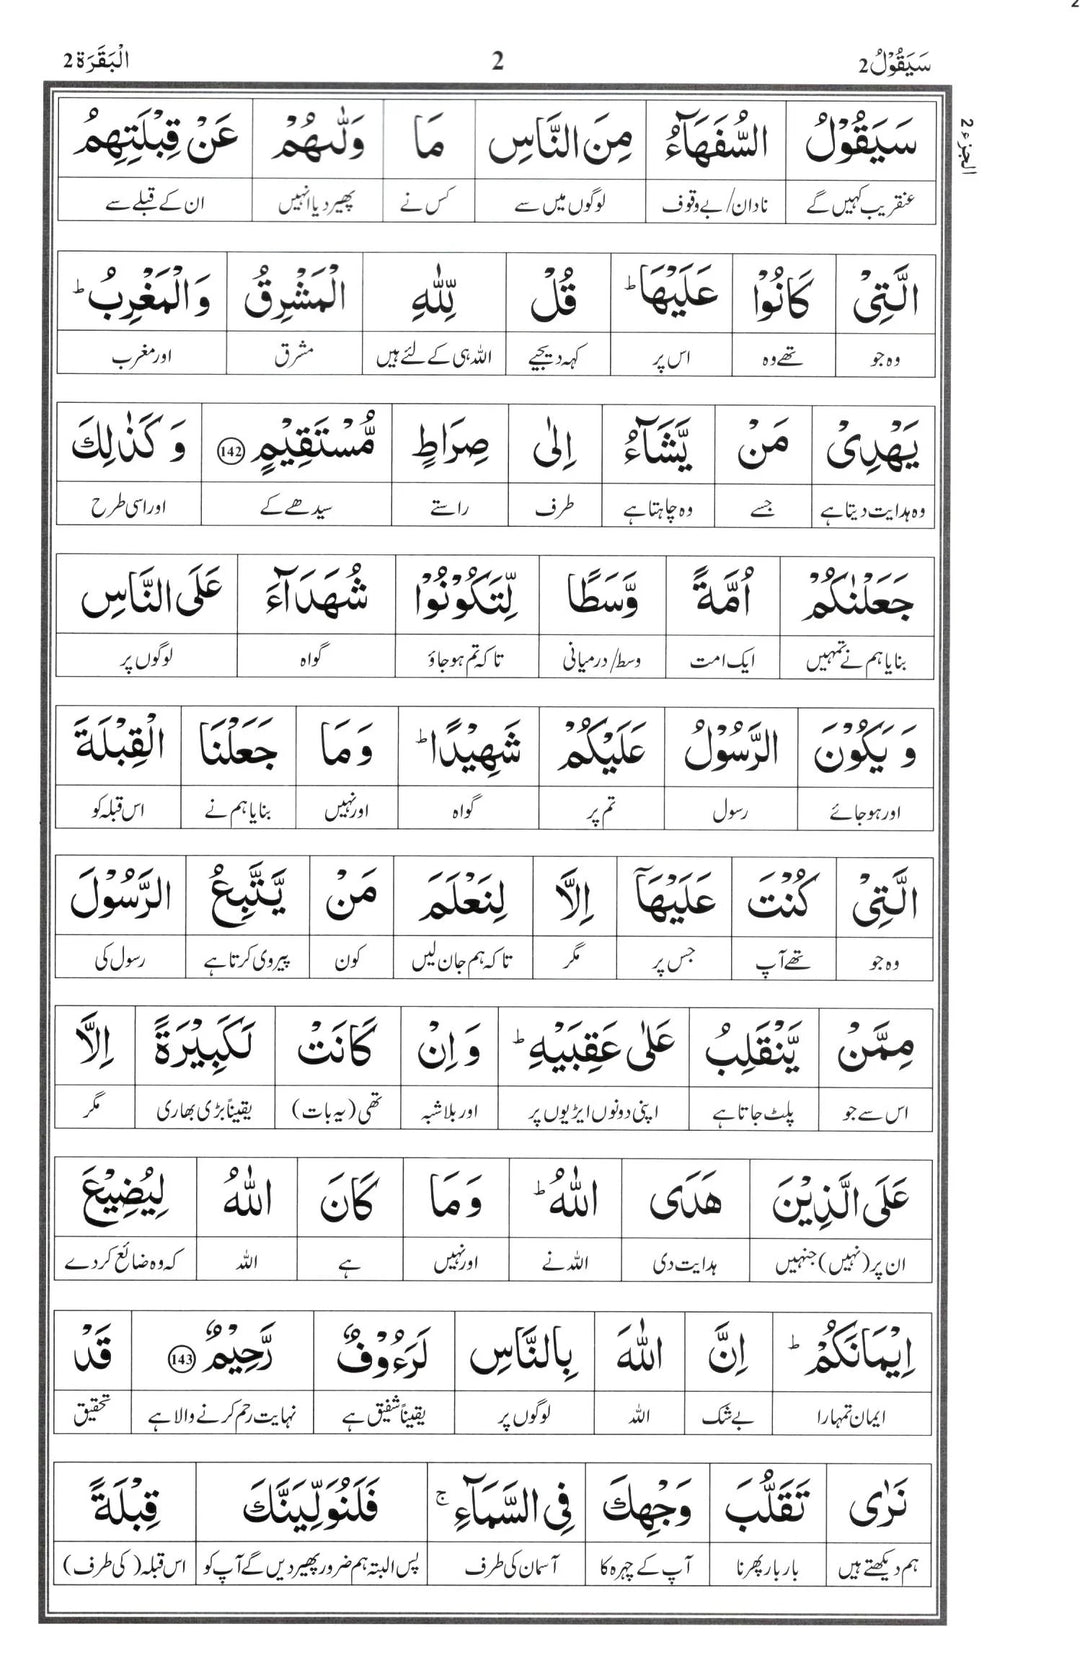 2
سَيَقُوْلُ2 2 الْبَقَرَة2
الجزء 2
سَيَقُوْلُ السُّفَهَآءُ مِنَ النَّاسِ مَا وَلّٰىهُمْ عَنْ قِبْلَتِهِمُ
عنقریب کہیں گے نادان/بے وقوف لوگوں میں سے کس نے پھیر دیا انہیں ان کے قبلے سے
الَّتِيْ كَانُوْا عَلَيْهَا ؕ قُلْ لِّلّٰهِ الْمَشْرِقُ وَالْمَغْرِبُ ؕ
وہ جو تھے وہ اس پر کہہ دیجیے اللہ ہی کے لئے ہیں مشرق اور مغرب
يَهْدِيْ مَنْ يَّشَآءُ اِلٰى صِرَاطٍ مُّسْتَقِيْمٍ 142 وَ كَذٰلِكَ
وہ ہدایت دیتا ہے جسے وہ چاہتا ہے طرف راستے سیدھے کے اور اسی طرح
جَعَلْنٰكُمْ اُمَّةً وَّسَطًا لِّتَكُوْنُوْا شُهَدَآءَ عَلَى النَّاسِ
بنایا ہم نے تمہیں ایک امت وسط/درمیانی تا کہ تم ہو جاؤ گواہ لوگوں پر
وَ يَكُوْنَ الرَّسُوْلُ عَلَيْكُمْ شَهِيْدًا ؕ وَ مَا جَعَلْنَا الْقِبْلَةَ
اور ہو جائے رسول تم پر گواہ اور نہیں بنایا ہم نے اس قبلہ کو
الَّتِيْ كُنْتَ عَلَيْهَآ اِلَّا لِنَعْلَمَ مَنْ يَّتَّبِعُ الرَّسُوْلَ
وہ جو تھے آپ جس پر مگر تا کہ ہم جان لیں کون پیروی کرتا ہے رسول کی
مِمَّنْ يَّنْقَلِبُ عَلٰى عَقِبَيْهِ ؕ وَ اِنْ كَانَتْ لَكَبِيْرَةً اِلَّا
اس سے جو پلٹ جاتا ہے اپنی دونوں ایڑیوں پر اور بلاشبہ تھی (یہ بات) یقیناً بڑی بھاری مگر
عَلَى الَّذِيْنَ هَدَى اللّٰهُ ؕ وَ مَا كَانَ اللّٰهُ لِيُضِيْعَ
ان پر (نہیں) جنہیں ہدایت دی اللہ نے اور نہیں ہے اللہ کہ وہ ضائع کردے
اِيْمَانَكُمْ ؕ اِنَّ اللّٰهَ بِالنَّاسِ لَرَءُوْفٌ رَّحِيْمٌ 143 قَدْ
ایمان تمہارا بے شک اللہ لوگوں پر یقیناً شفیق ہے نہایت رحم کرنے والا ہے تحقیق
نَرٰى تَقَلُّبَ وَجْهِكَ فِي السَّمَآءِ ۚ فَلَنُوَلِّيَنَّكَ قِبْلَةً
ہم دیکھتے ہیں بار بار پھرنا آپ کے چہرہ کا آسمان کی طرف پس البتہ ہم ضرور پھیر دیں گے آپ کو اس قبلہ (کی طرف)